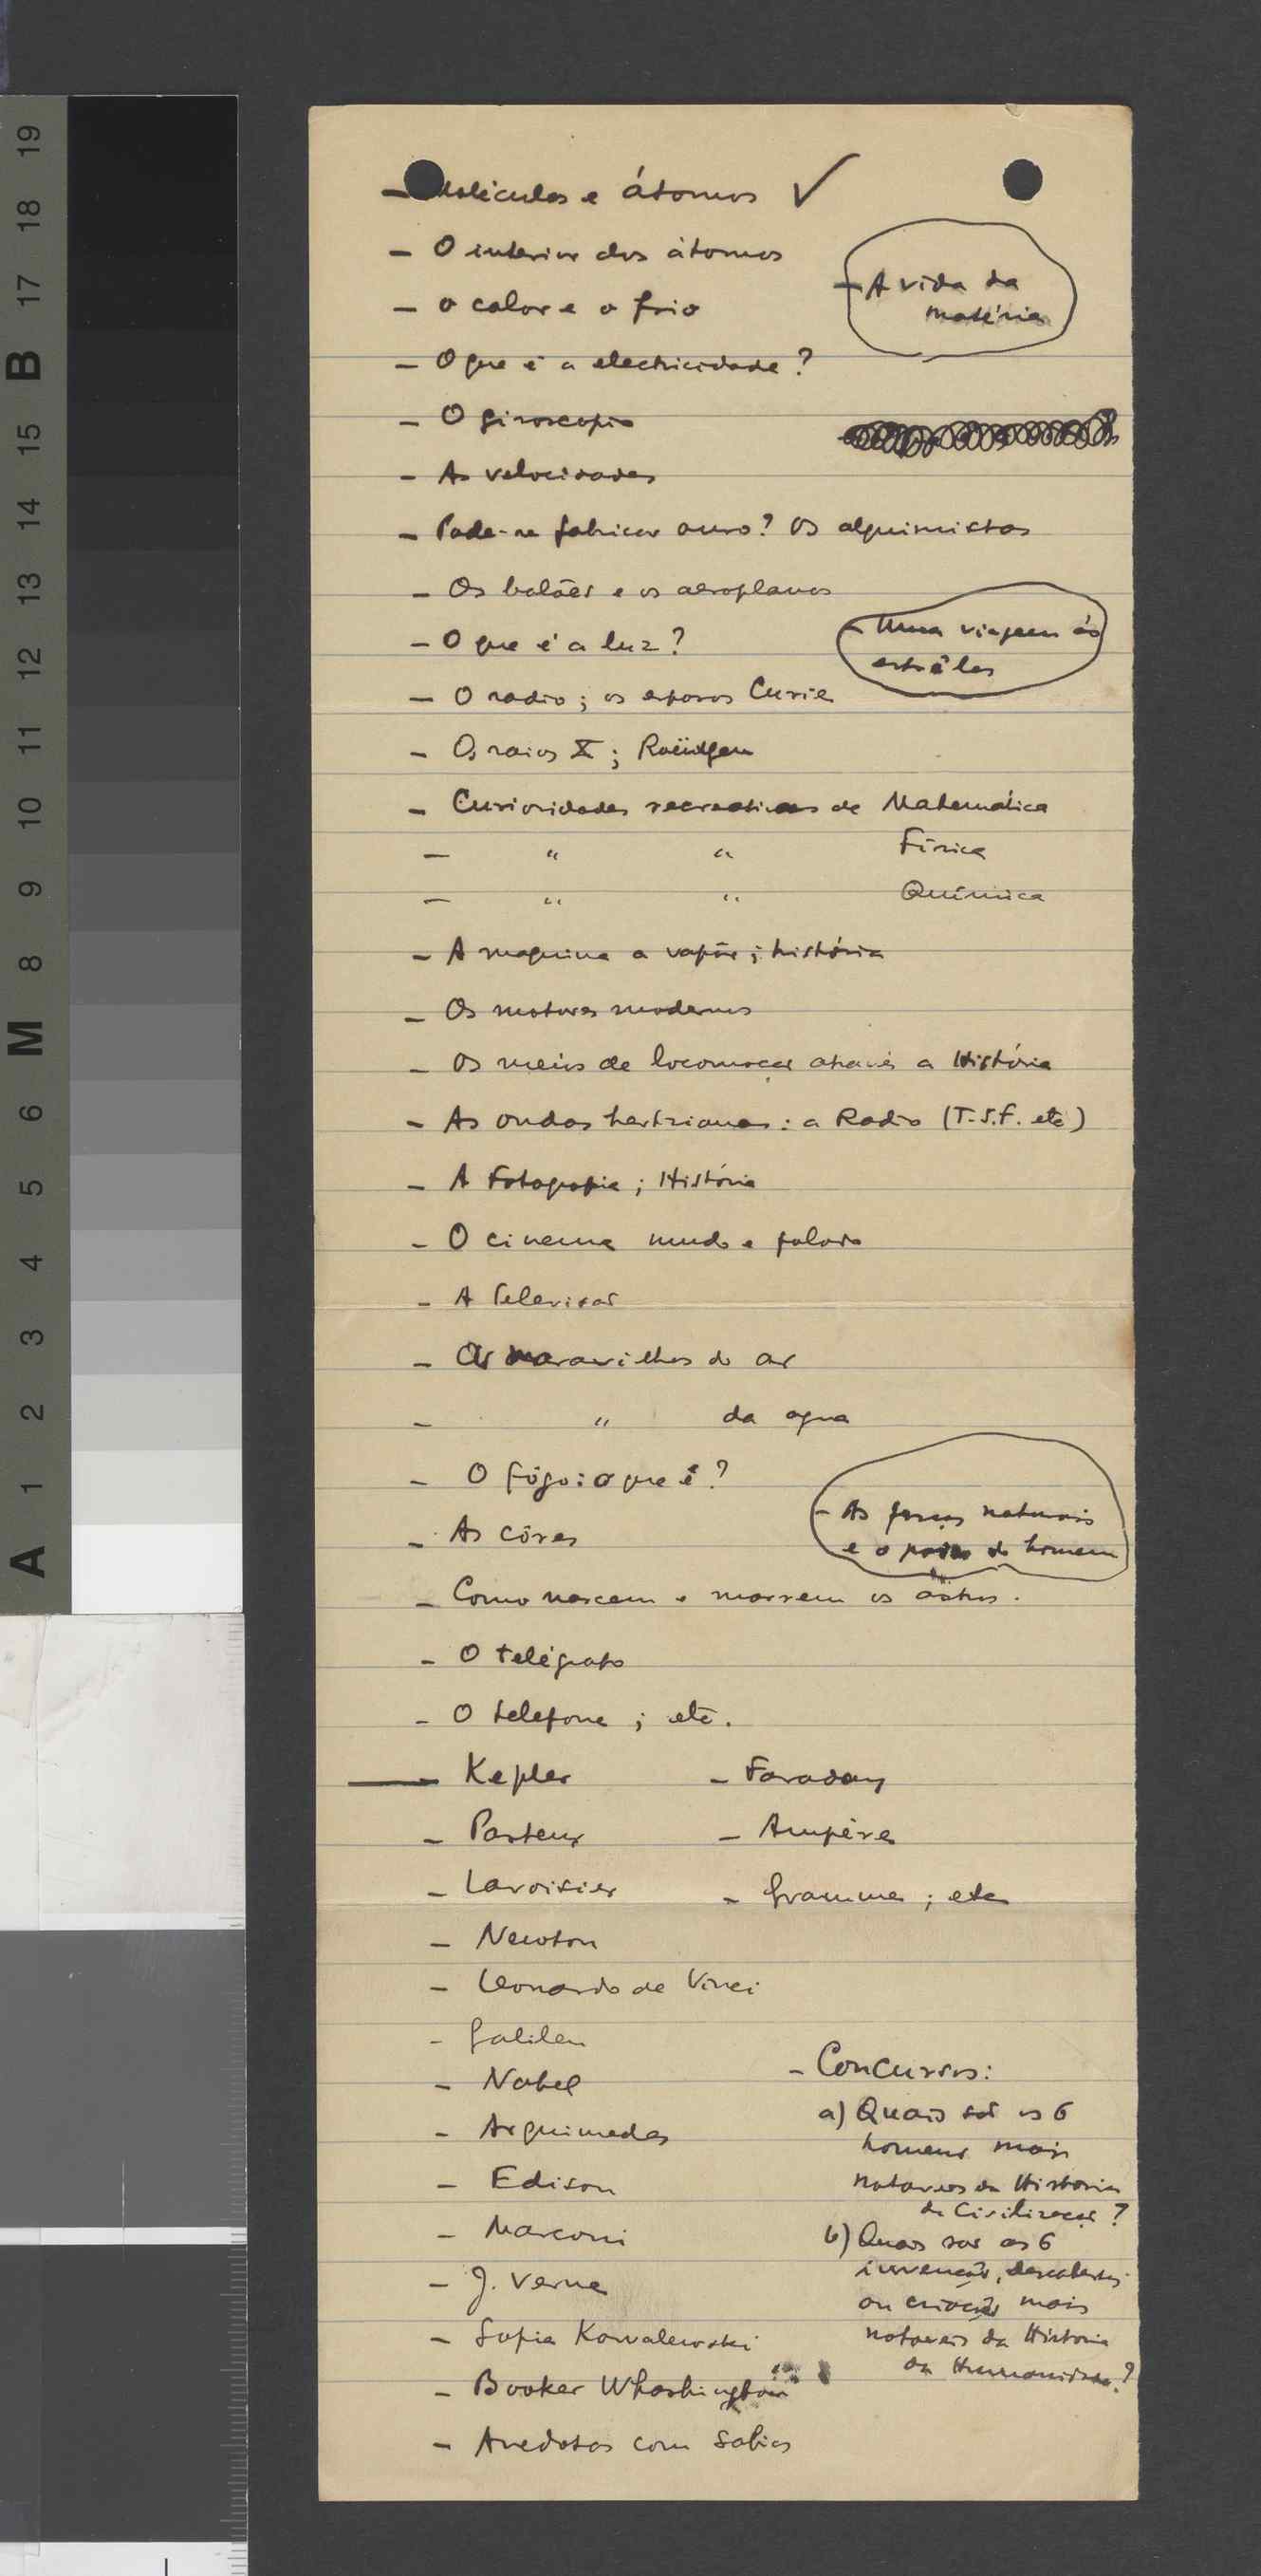 - Moléculas e átomos ✓
- O interior dos átomos
- A vida da
matéria
- O calor e o frio
- O que é a electricidade?
- O giroscopio
- As velocidades
- Pode-se fabricar ouro? Os alquimistas
- Os balões e os aeroplanos
- Uma viagem ás
estrêlas
- O que é a luz?
- O radio; os esposos Curie
- Os raios X; Roëntgen
- Curiosidades recreativas de Matemática
- " " Física
- " " Química
- A maquina a vapôr; história
- Os motores modernos
- Os meios de locomoção através a História
- As ondas hertzianas: a Radio (T.S.F. etc)
- A Fotografia; História
- O cinema mudo e falado
- A Televisão
- As maravilhas do ar
- " da agua
- O fôgo: o que é?
- As côres
- As forças naturais
e o poder do homem
- Como nascem e morrem os astros.
- O telégrafo
- O telefone; etc.
- Kepler - Faraday
- Pasteur - Ampère
- Lavoisier - Gramme; etc
- Newton
- Leonardo de Vinci
- Galileu
- Nobel
- Arquimedes
- Edison
- Marconi
- J. Verne
- Sofia Kowalewski
- Booker Whashington
- Anedotas com Sabios
- Concursos:
a) Quais são os 6
homens mais
notaveis da Historia
da Civilização?
b) Quais são as 6
invenções, descobertas
ou criações mais
notaveis da Historia
da Humanidade?